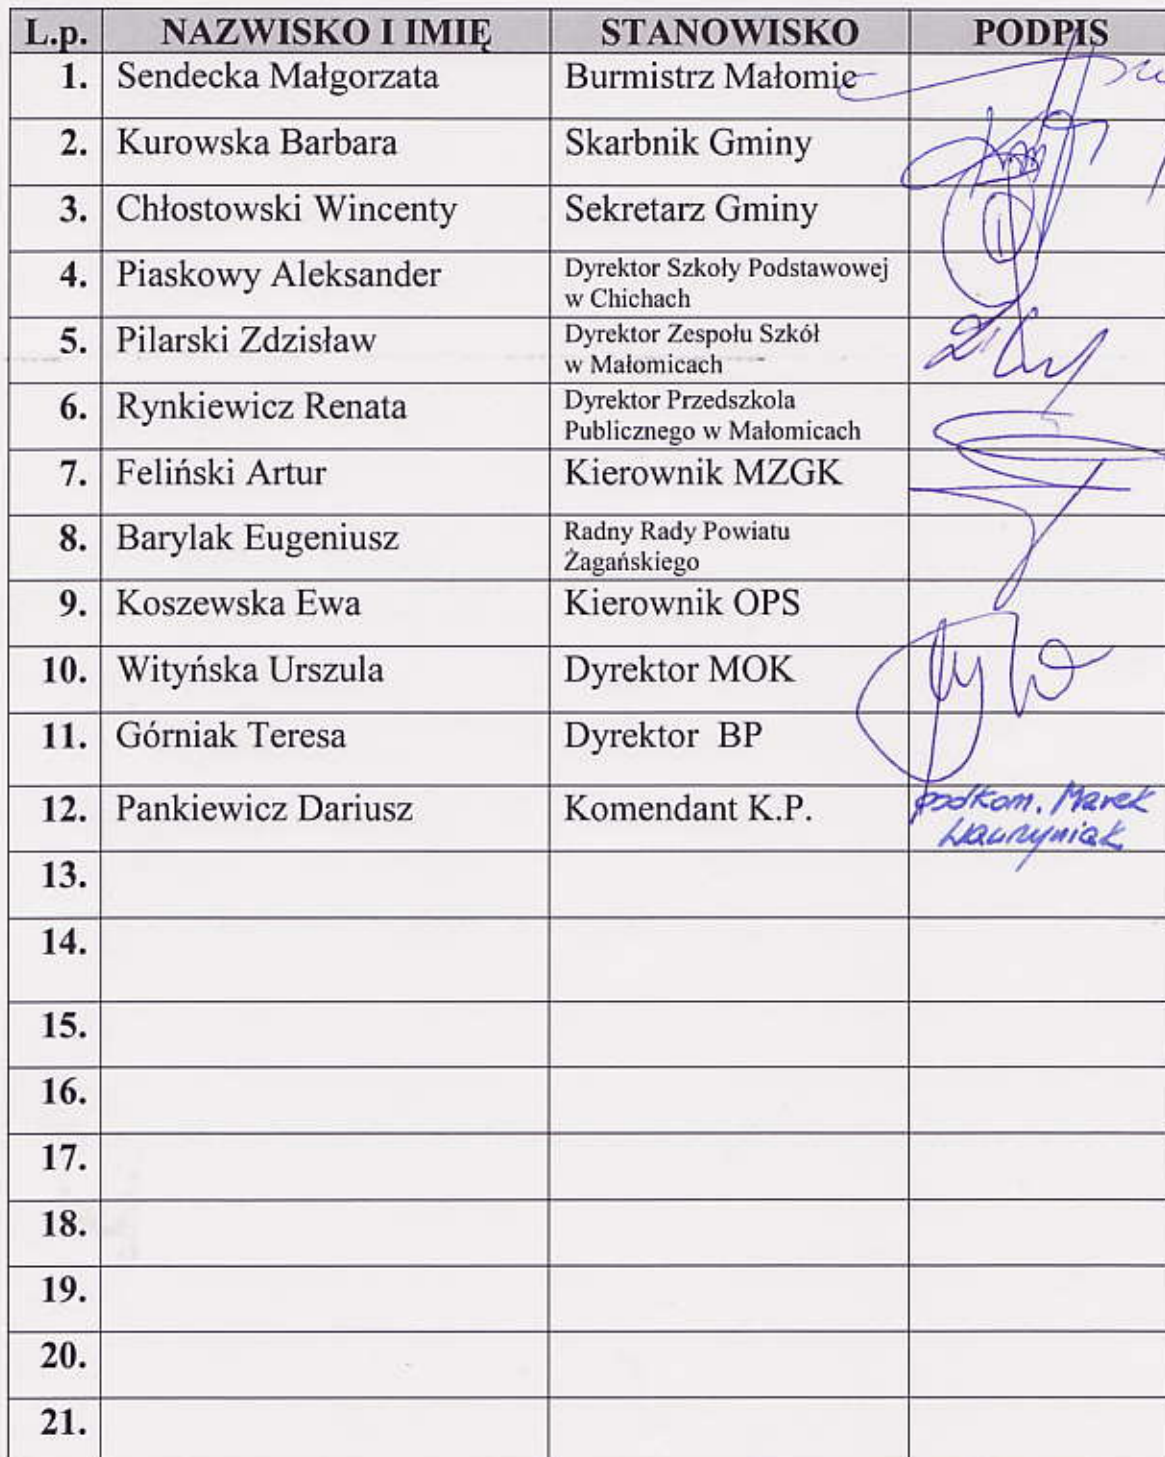 L.p. NAZWISKO I IMIĘ STANOWISKO PODPIS
1. Sendecka Małgorzata Burmistrz Małomic
2. Kurowska Barbara Skarbnik Gminy
3. Chłostowski Wincenty Sekretarz Gminy
4. Piaskowy Aleksander Dyrektor Szkoły Podstawowej
w Chichach
5. Pilarski Zdzisław Dyrektor Zespołu Szkół
w Małomicach
6. Rynkiewicz Renata Dyrektor Przedszkola
Publicznego w Małomicach
7. Feliński Artur Kierownik MZGK
8. Barylak Eugeniusz Radny Rady Powiatu
Żagańskiego
9. Koszewska Ewa Kierownik OPS
10. Wityńska Urszula Dyrektor MOK
11. Górniak Teresa Dyrektor BP
12. Pankiewicz Dariusz Komendant K.P. podkom. Marek
Wawryniak
13.
14.
15.
16.
17.
18.
19.
20.
21.